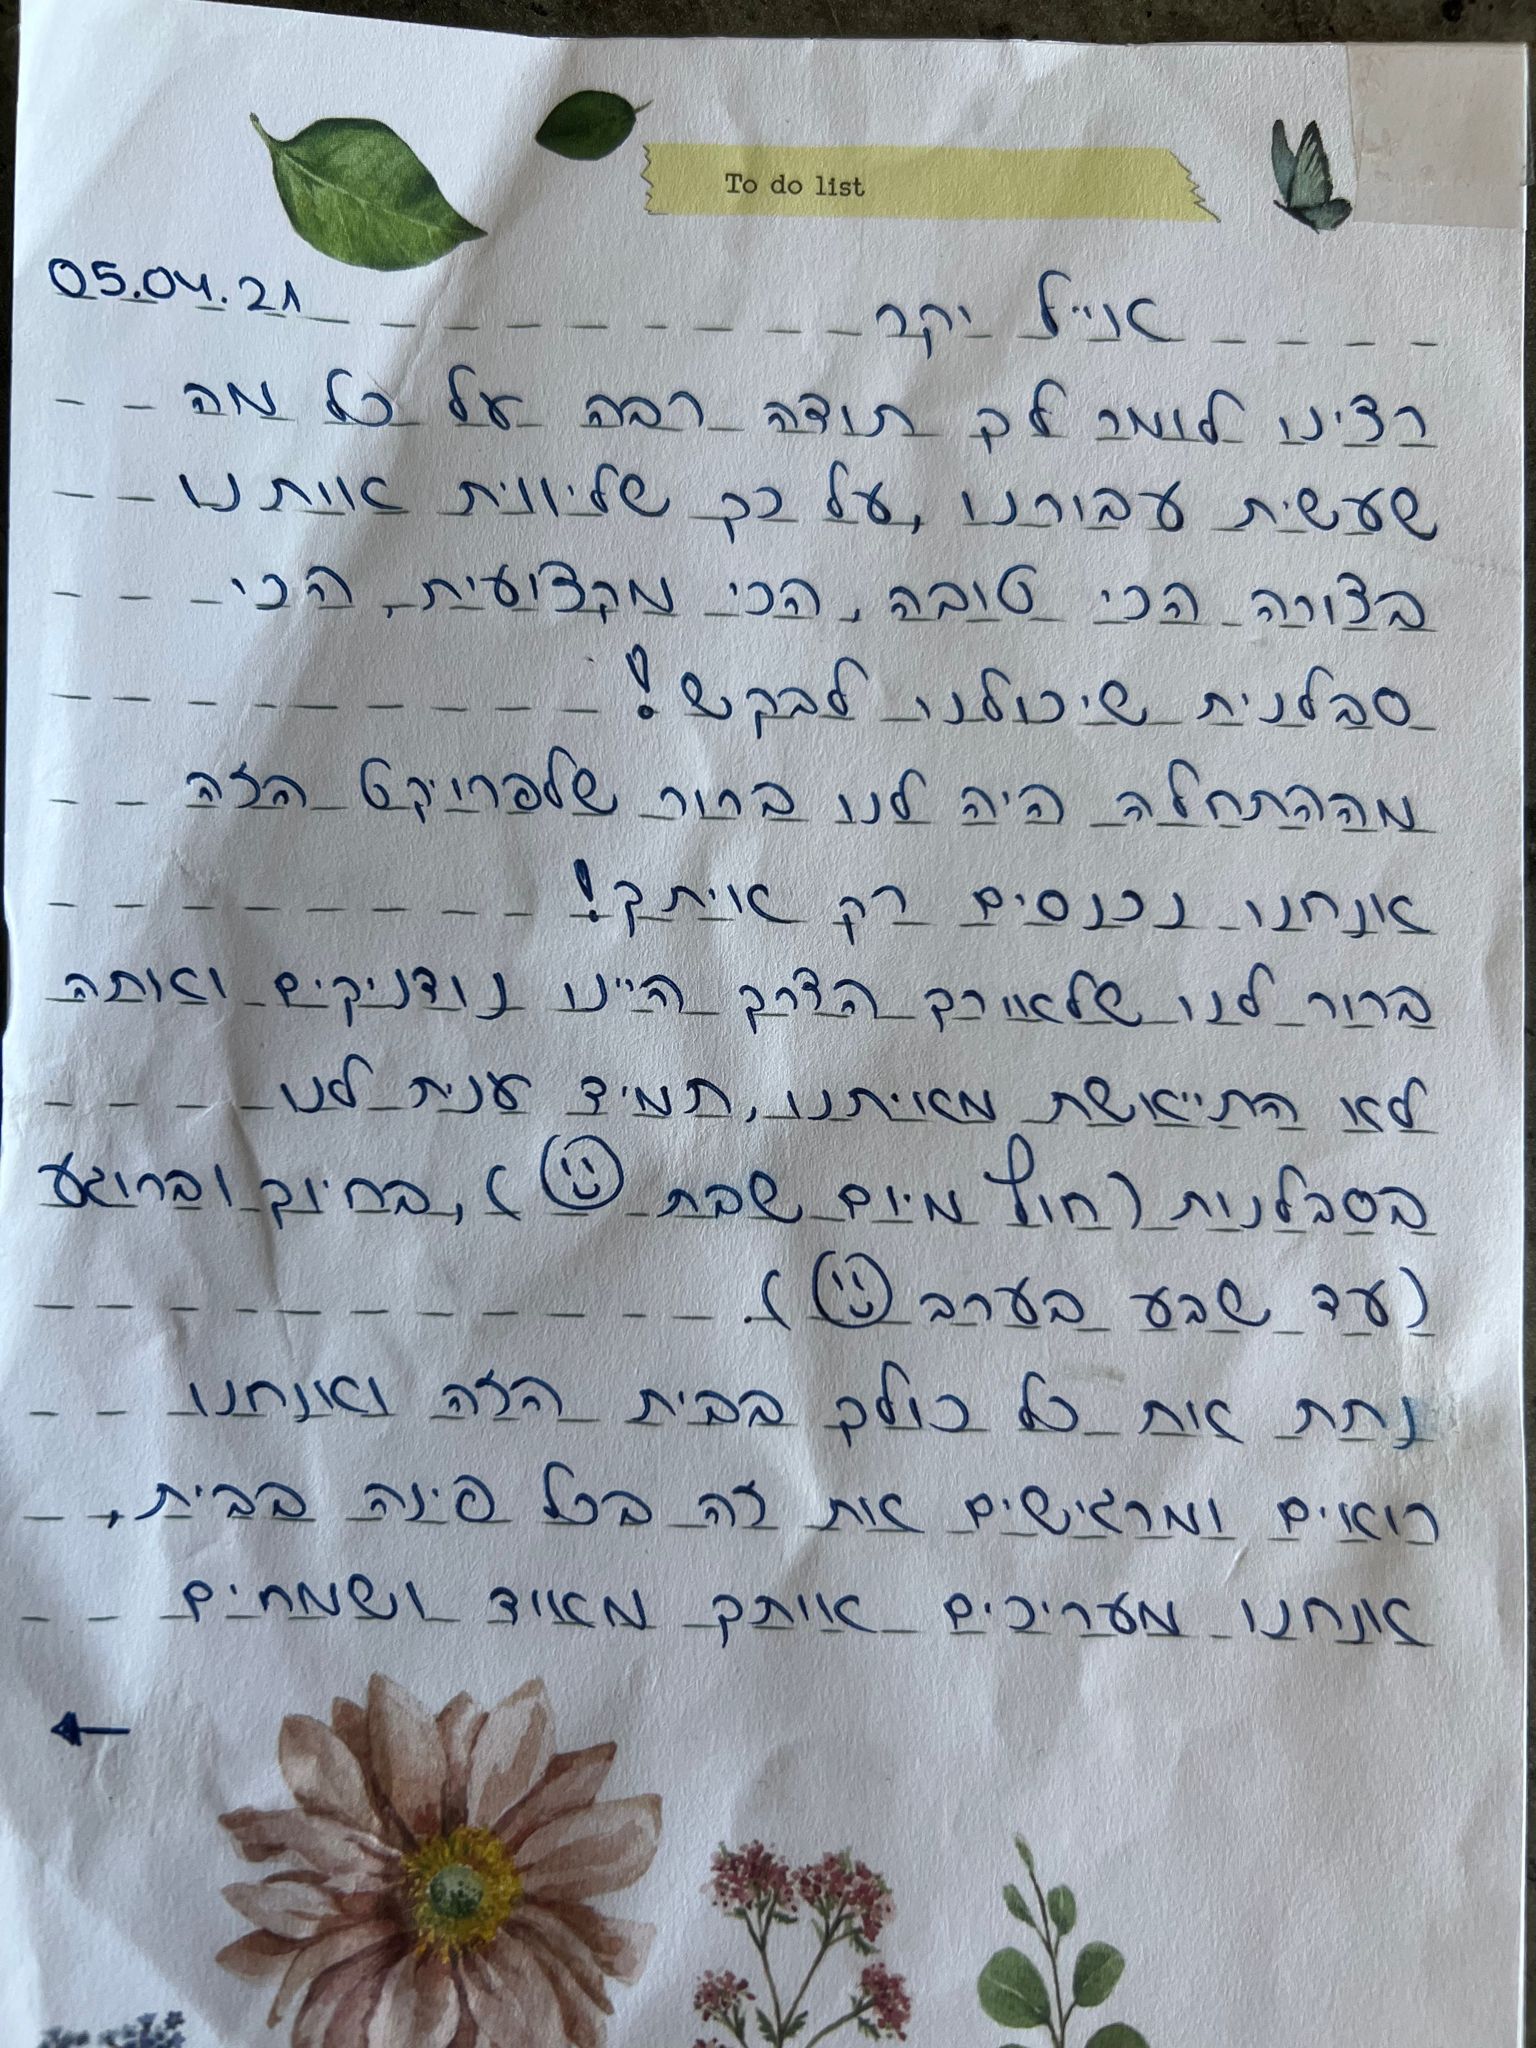 To do list
05.04.21
אייל יקר
רצינו לומר לך תודה רבה על כל מה
שעשית עבורנו, על כך שליווית אותנו
בצורה הכי טובה, הכי מקצועית, הכי
סבלנית שיכולנו לבקש!
מההתחלה היה לנו ברור שלפרויקט הזה
אנחנו נכנסים רק איתך!
ברור לנו שלאורך הדרך היינו נודניקים ואתה
לא התייאשת מאיתנו, תמיד ענית לנו
בסבלנות (חוץ מיום שבת 🙂), בחיוך וברוגע
(עד שבע בערב 🙂).
נתת את כל כולך בבית הזה ואנחנו
רואים ומרגישים את זה בכל פינה בבית,
אנחנו מעריכים אותך מאוד ושמחים
←